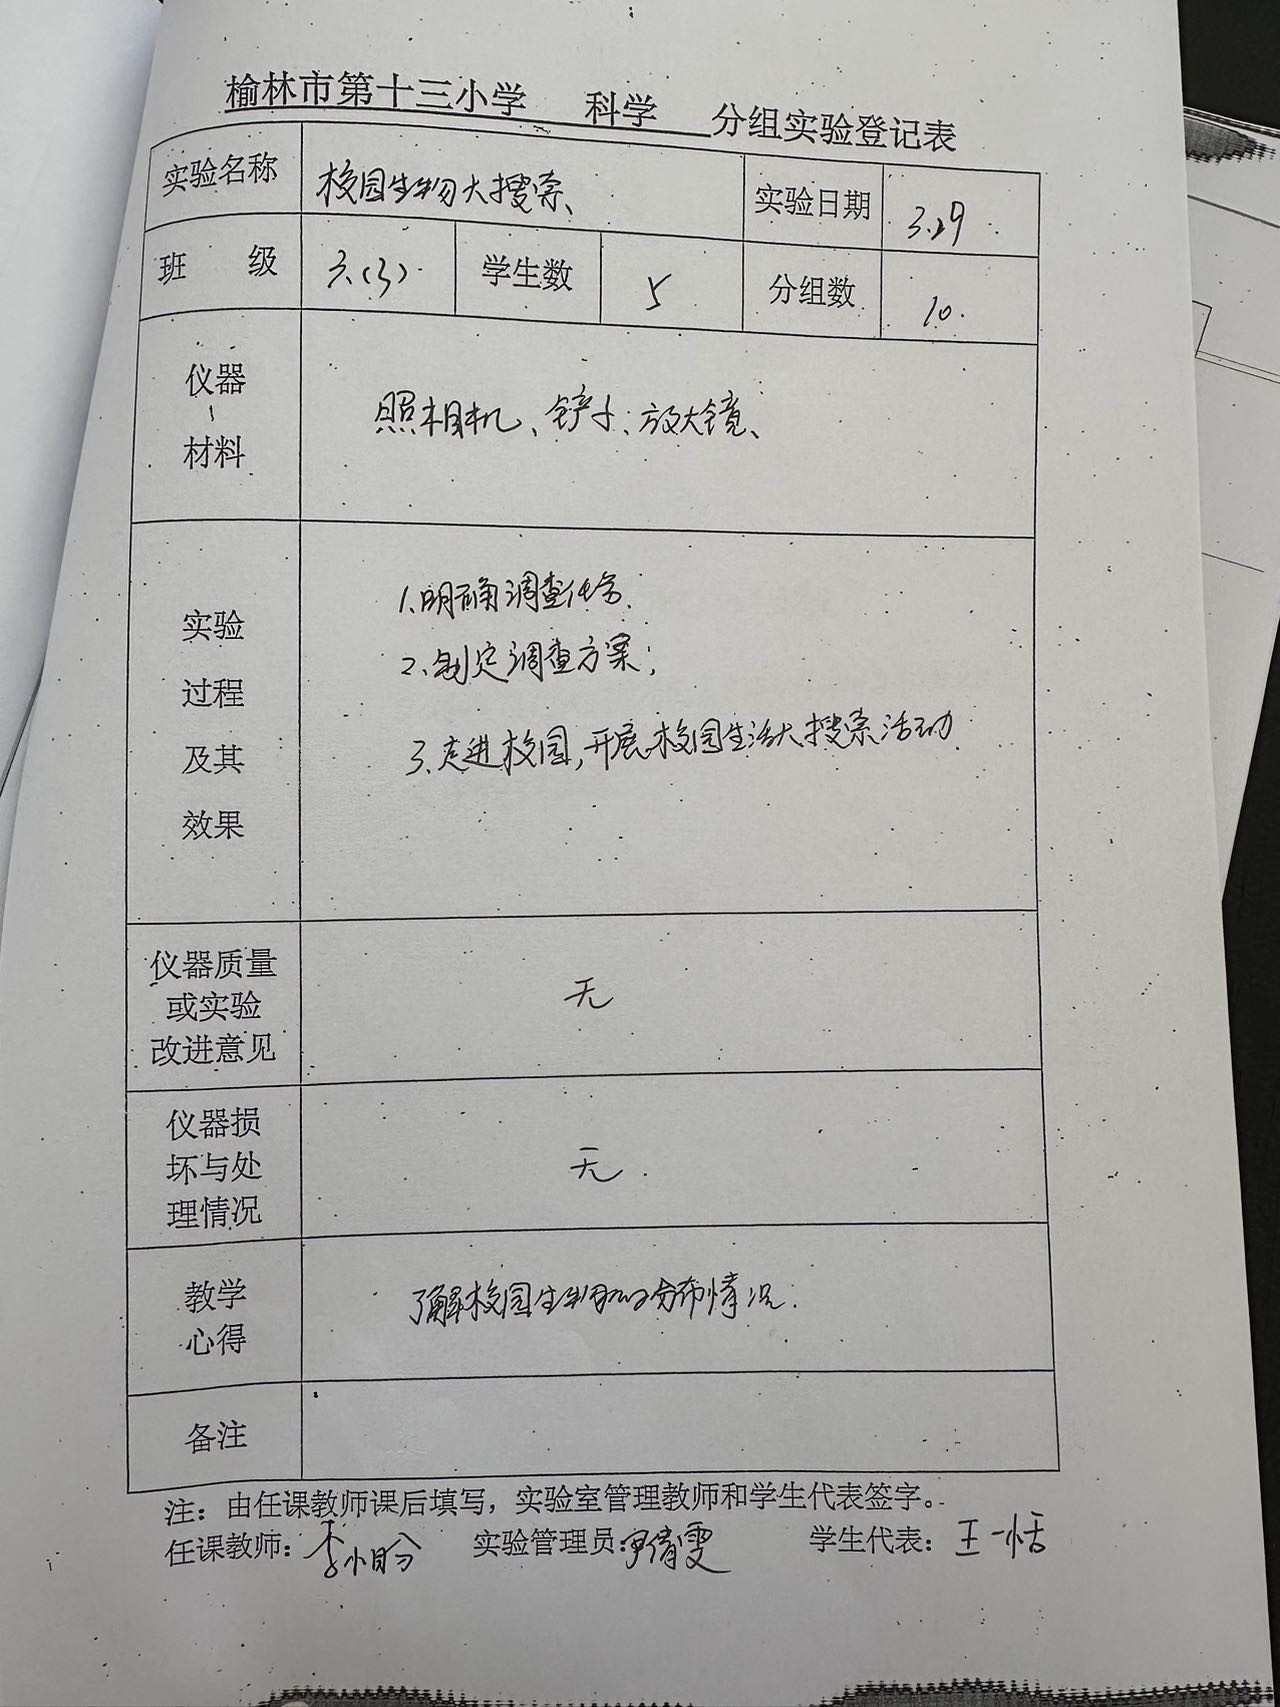 榆林市第十三小学 科学 分组实验登记表
实验名称 校园生物大搜索、 实验日期 3.29.
班 级 六(3). 学生数 5 分组数 10.
仪器
材料
照相机、铲子、放大镜、
实验
过程
及其
效果
1.明确调查任务.
2.制定调查方案;
3.走进校园,开展校园生活大搜索活动
仪器质量
或实验
改进意见
无
仪器损
坏与处
理情况
无.
教学
心得
了解校园生物的分布情况.
备注
注：由任课教师课后填写，实验室管理教师和学生代表签字。
任课教师: 李 实验管理员: 倩雯 学生代表: 王一恬